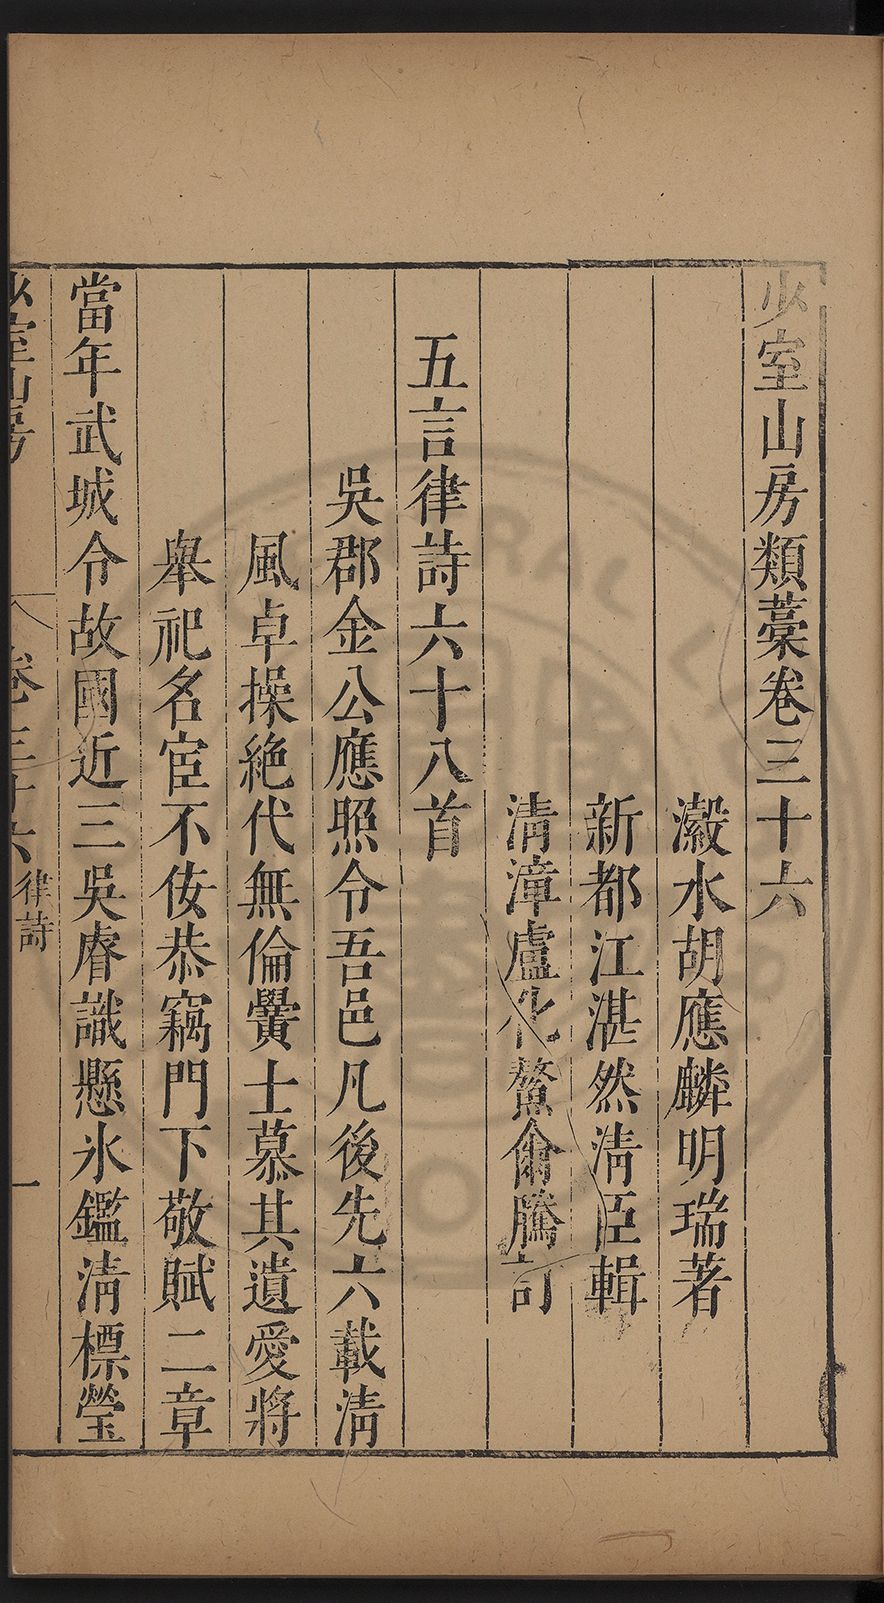 少室山房類藁卷三十六
瀫水胡應麟明瑞著
新都江湛然淸臣輯
淸漳盧化鰲尙騰訂
五言律詩六十八首
吳郡金公應照令吾邑凡後先六載淸
風卓操絶代無倫黌士慕其遺愛將
舉祀名宦不侫恭竊門下敬賦二章
當年武城令故國近三吳睿識懸氷鑑淸標瑩
少室山房 卷三十六 律詩 一